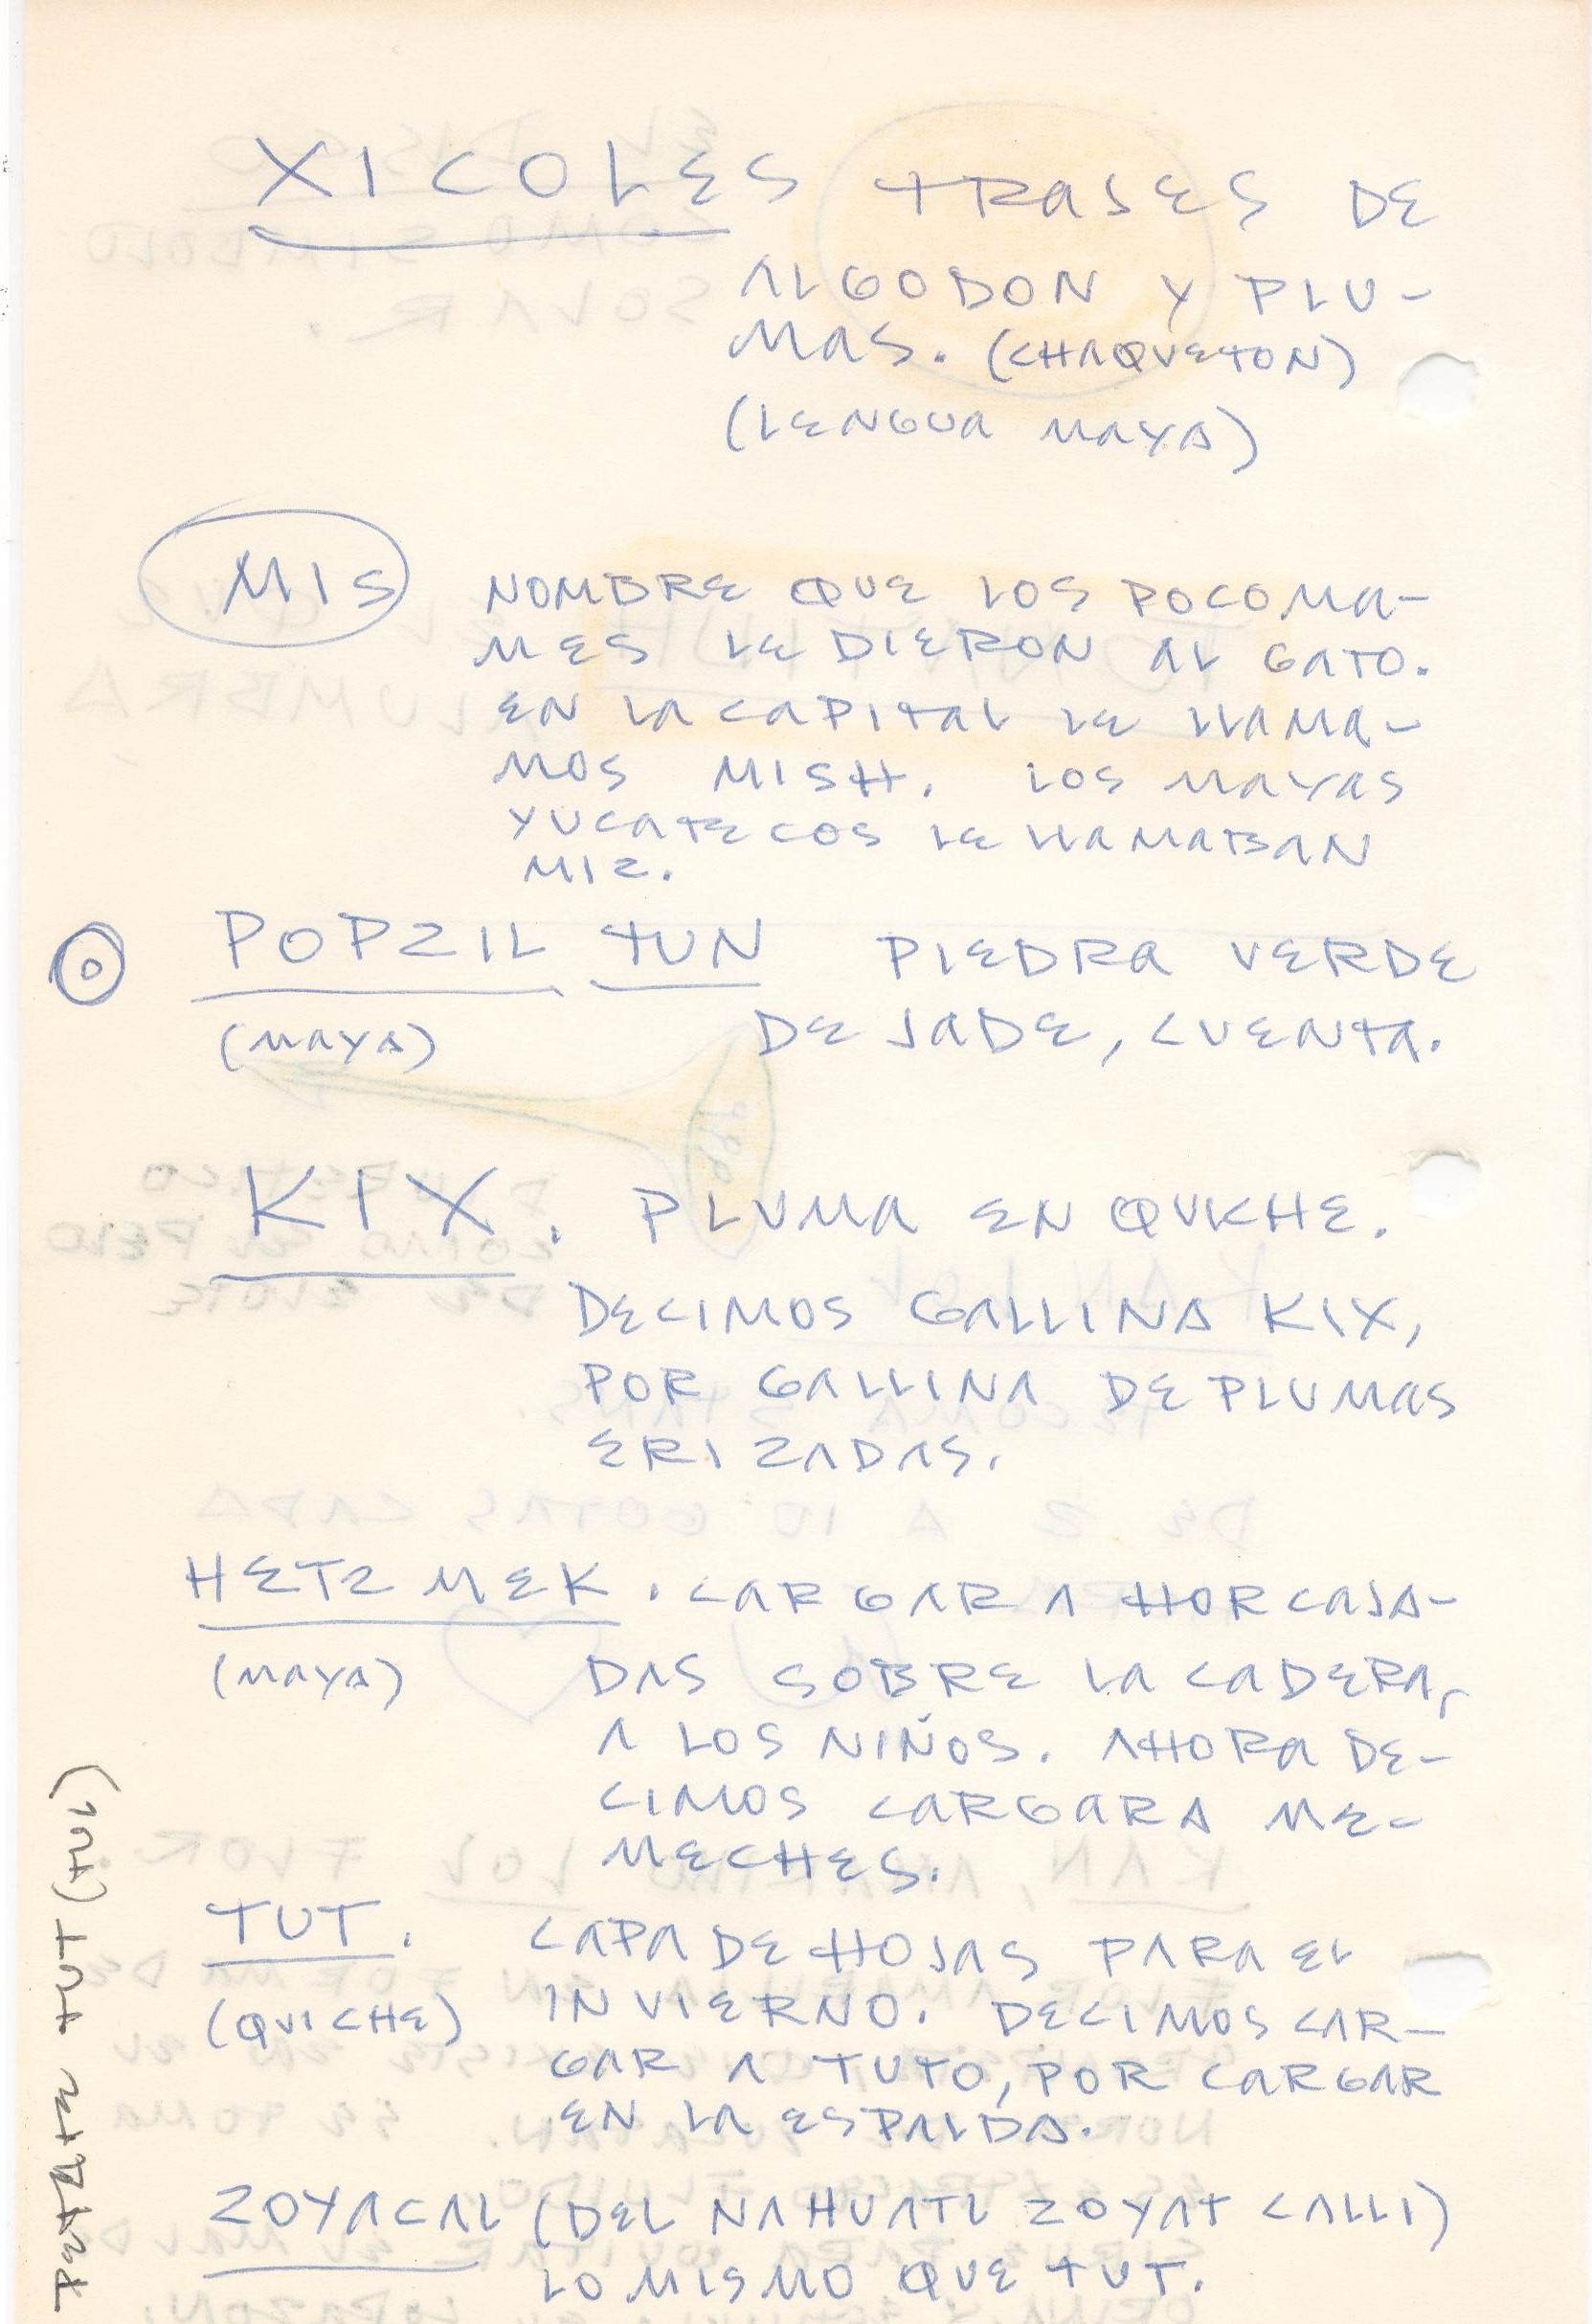 XICOLES TRAJES DE
ALGODON Y PLU-
MAS. (CHAQUETON)
(LENGUA MAYA)
MIS NOMBRE QUE LOS POCOMA-
MES LE DIERON AL GATO.
EN LA CAPITAL LE LLAMA-
MOS MISH. LOS MAYAS
YUCATECOS LE LLAMABAN
MIZ.
POPZIL TUN PIEDRA VERDE
(MAYA) DE JADE, CUENTA.
KIX. PLUMA EN QUICHE.
DECIMOS GALLINA KIX,
POR GALLINA DE PLUMAS
ERIZADAS.
HETZ MEK. CARGAR A HORCAJA-
(MAYA) DAS SOBRE LA CADERA,
A LOS NIÑOS. AHORA DE-
CIMOS CARGAR A ME-
MECHES.
TUT. CAPA DE HOJAS PARA EL
(QUICHE) INVIERNO. DECIMOS CAR-
GAR A TUTO, POR CARGAR
EN LA ESPALDA.
ZOYACAL (DEL NAHUATL ZOYAT CALLI)
LO MISMO QUE TUT.
PETATE TUT (TUL)